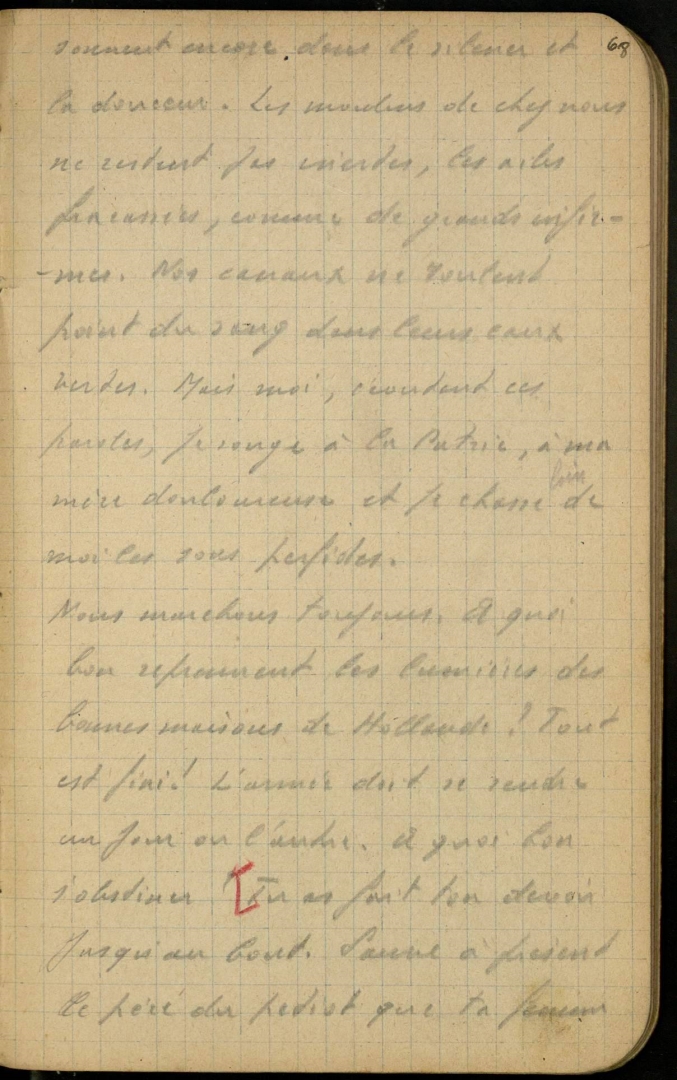 68
sonnent encore dans le silence et
la douceur. Les moulins de chez nous
ne restent pas inertes, les ailes
fracassées, comme de grands infir-
-mes. Nos canaux ne roulent
point du sang dans leurs eaux
vertes. Mais moi, écoutant ces
paroles, je songe à la Patrie, à ma
mère douloureuse et je chasse loin de
moi les sons perfides.
Nous marchons toujours. A quoi
bon reprennent les lumières des
bonnes maisons de Hollande ! Tout
est fini ! L'armée doit se rendre
un jour ou l'autre. A quoi bon
s'obstiner ! [Tu as fait ton devoir
jusqu'au bout. Sauve à présent
le père du petiot que ta femme